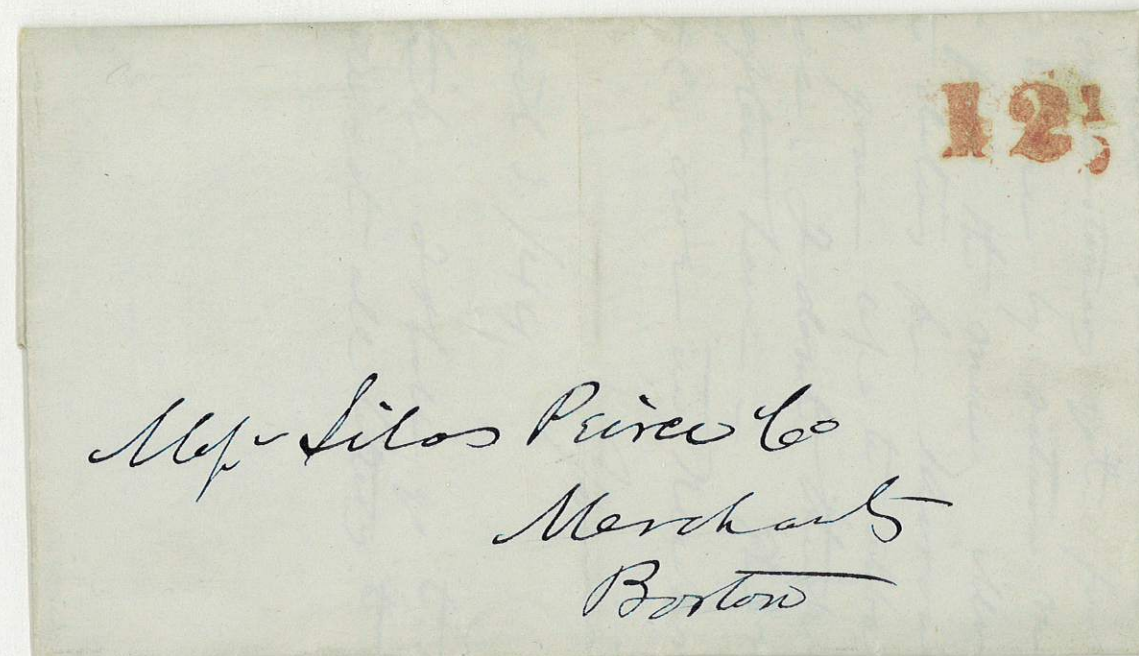 12½
Messrs Silas Peirce Co
Merchants
Boston